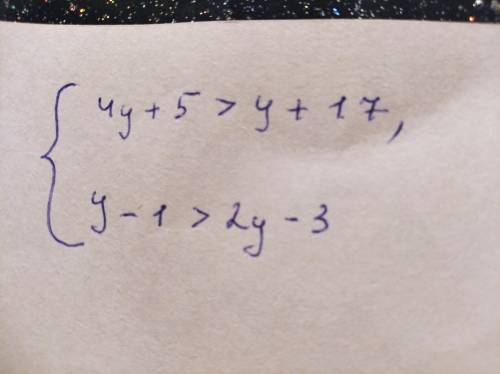 4y + 5 > y + 17,
y - 1 > 2y - 3